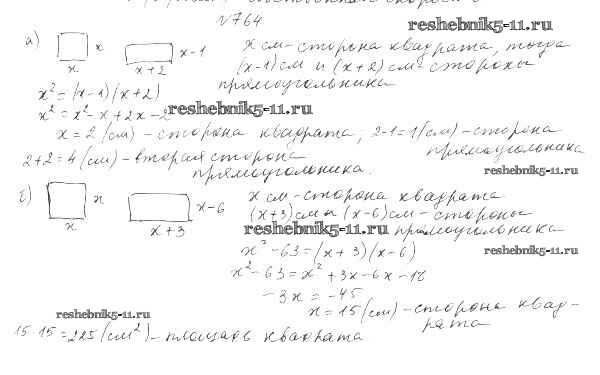 №764
reshebnik5-11.ru
а) x x x-1 x+2 x см - сторона квадрата, тогда
(x-1) см и (x+2) см - стороны
прямоугольника
x² = (x-1)(x+2)
x² = x² - x + 2x - 2 reshebnik5-11.ru
x = 2 (см) - сторона квадрата, 2-1=1 (см) - сторона
прямоугольника
2+2=4 (см) - вторая сторона
прямоугольника.
reshebnik5-11.ru
б) x x x-6 x+3 x см - сторона квадрата
(x+3) см и (x-6) см - стороны
reshebnik5-11.ru прямоугольника
x² - 63 = (x+3)(x-6)
reshebnik5-11.ru
x² - 63 = x² + 3x - 6x - 18
-3x = -45
x = 15 (см) - сторона квад-
рата
reshebnik5-11.ru
15·15=225 (см²) - площадь квадрата